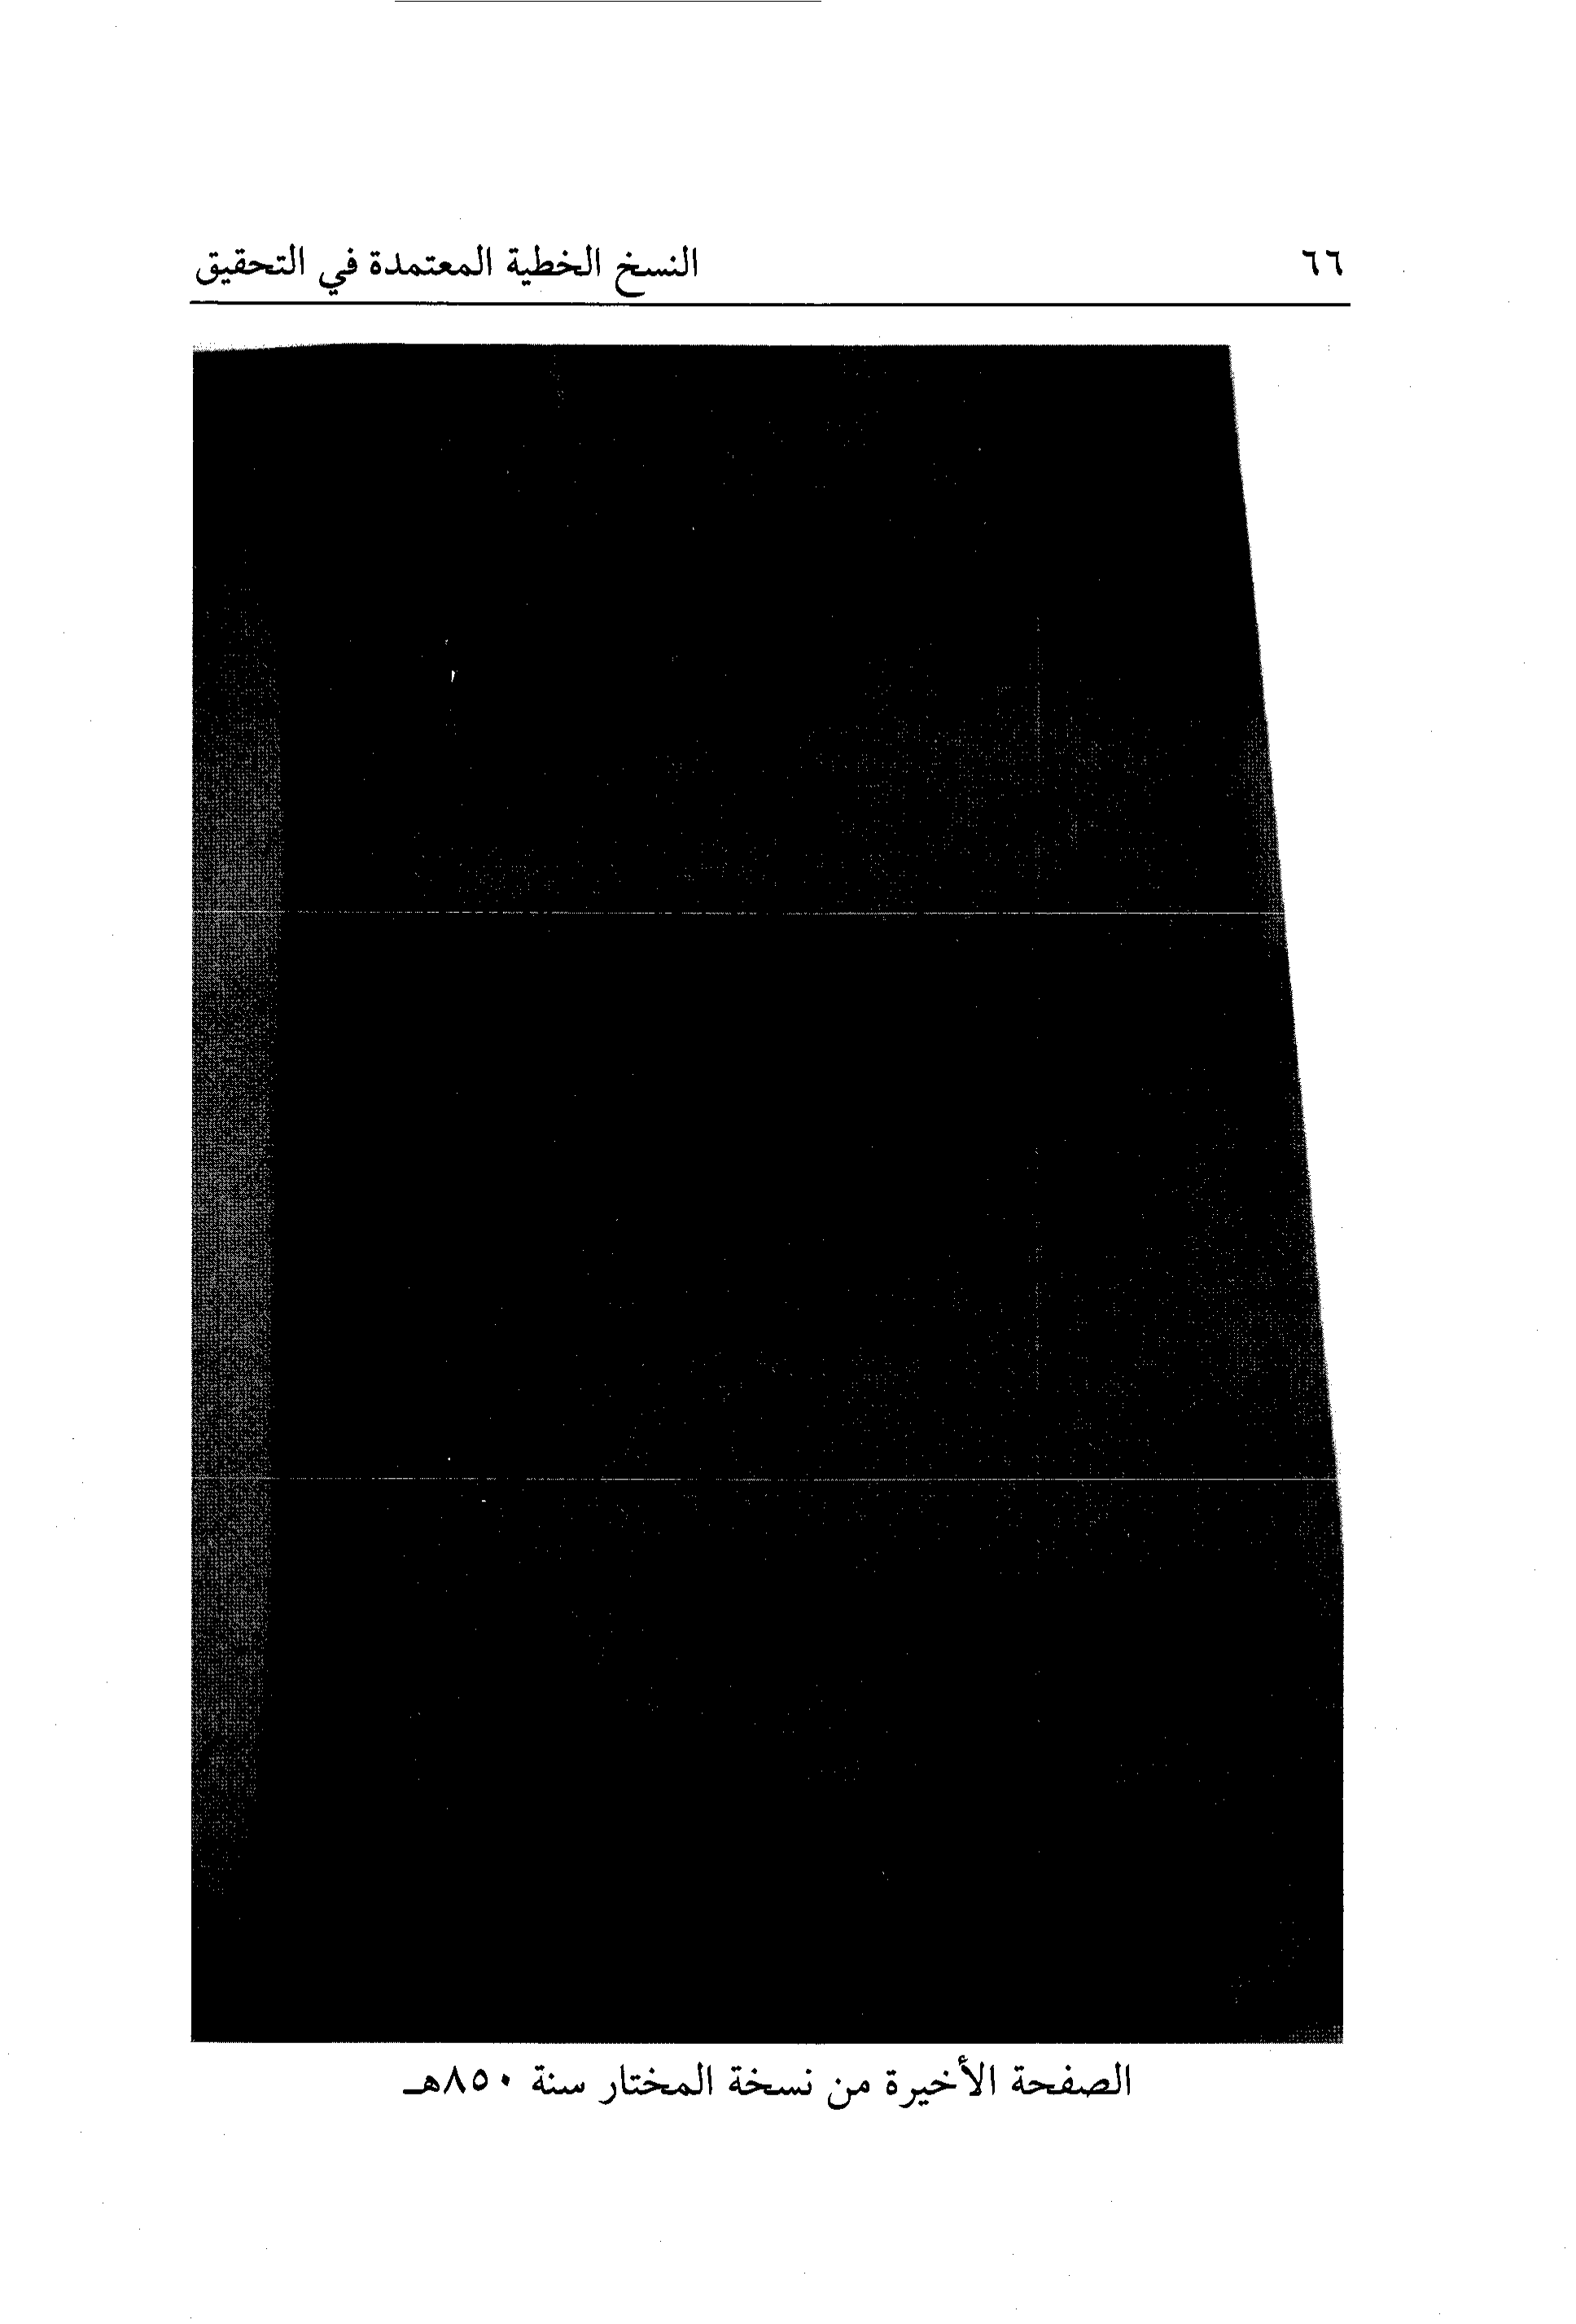 ٦٦ النسخ الخطية المعتمدة في التحقيق
الصفحة الأخيرة من نسخة المختار سنة ٨٥٠هـ